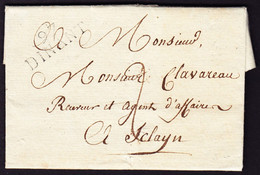 97
DINANT
Monsieur,
Monsieur Clavareau
Receveur et agent d'affaires
A Sclayn
2